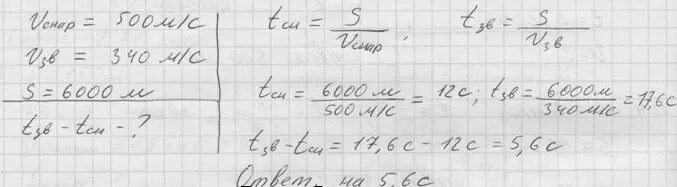 Vснар = 500 м/с
Vзв = 340 м/с
S = 6000 м
tзв - tсн - ?
tсн = S/Vснар ; tзв = S/Vзв
tсн = 6000 м/500 м/с = 12с; tзв = 6000м/340 м/с = 17,6с
tзв - tсн = 17,6с - 12с = 5,6с
Ответ на 5,6с